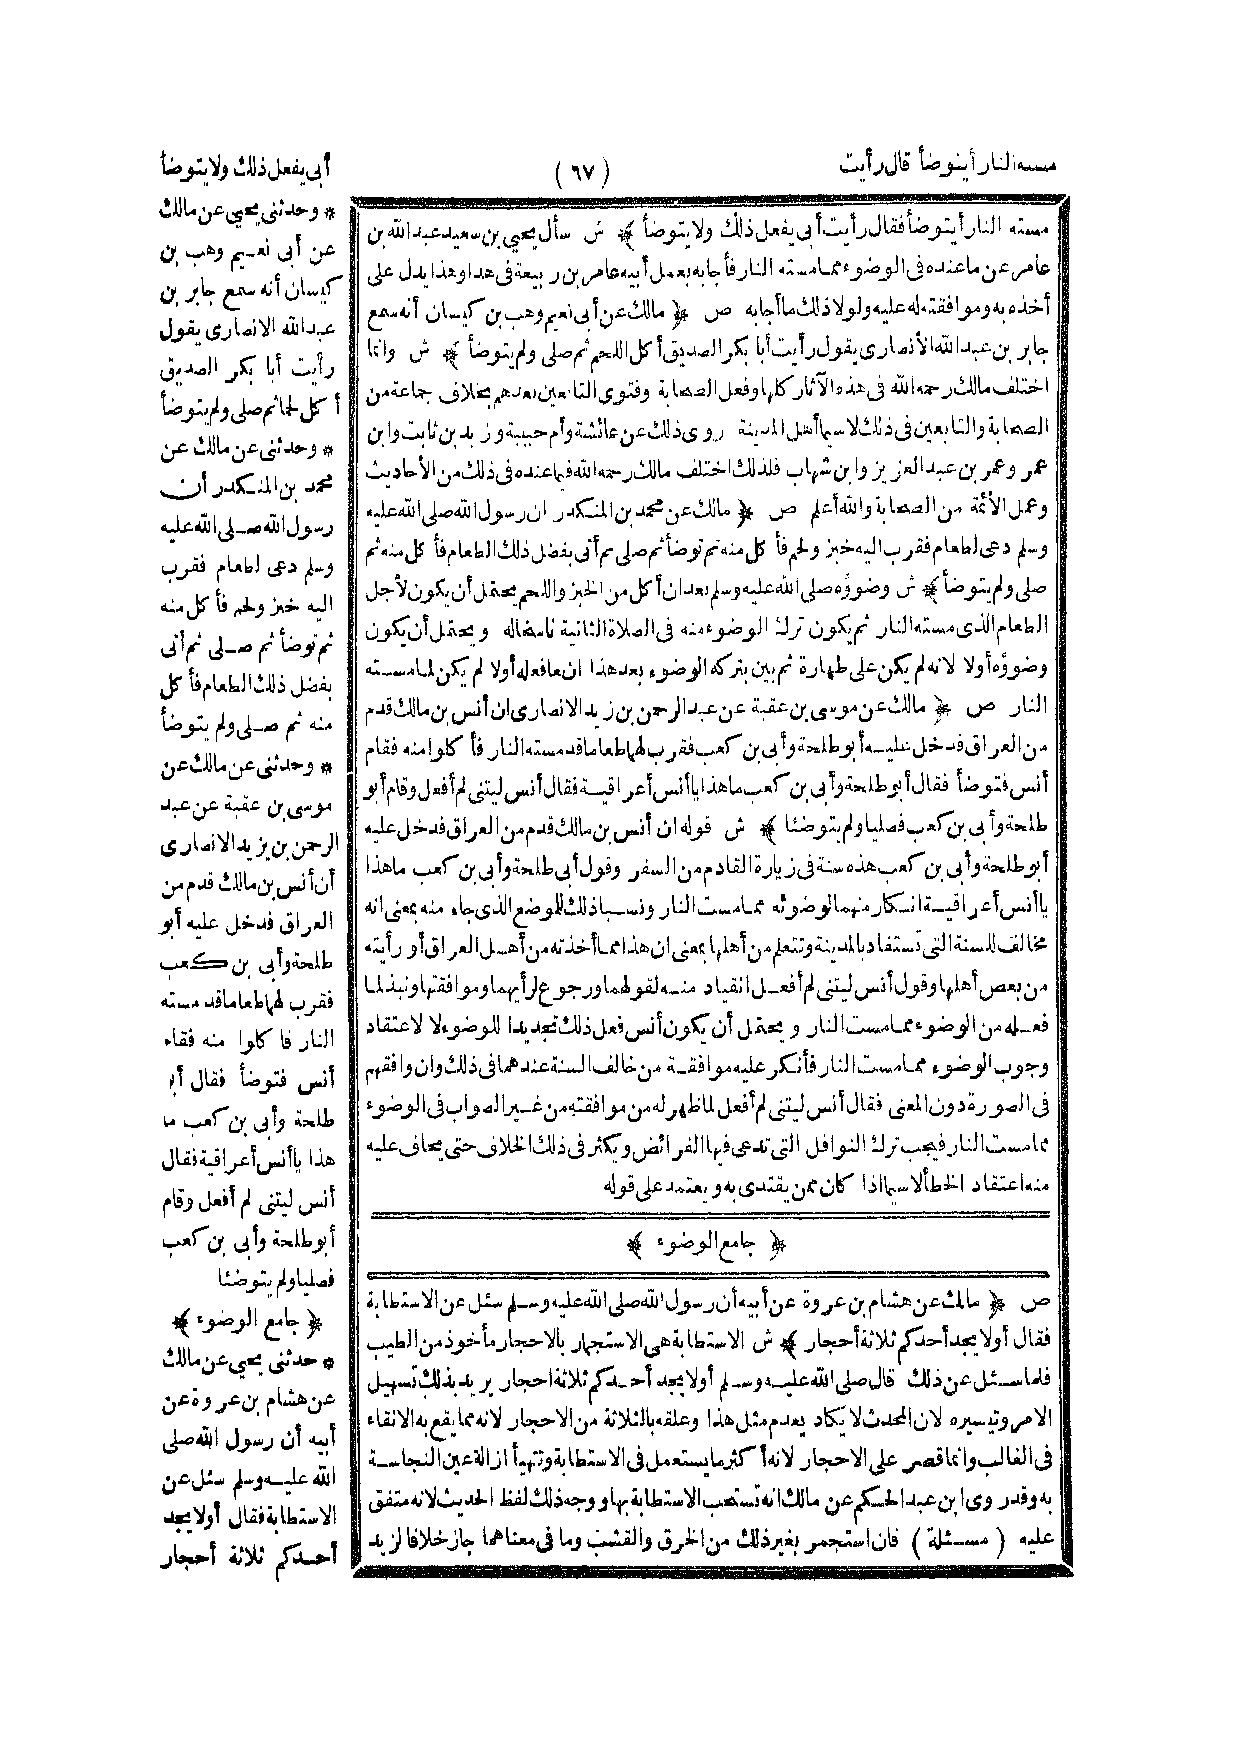 مسته النار أيتوضأ قال رأيت
( ٦٧ )
مسته النار أيتوضأ فقال رأيت أبى يفعل ذلك ولا يتوضأ ﴾ ش سأل يحيى بن سعيد عبد الله بن
عامر عن ما عنده فى الوضوء مما مسته النار فأجابه بعمل أبيه عامر بن ربيعة فى هذا وهذا يدل على
أخذه به وموافقته له عليه ولولا ذلك ما أجابه ص ﴿ مالك عن أبى نعيم وهب بن كيسان أنه سمع
جابر بن عبد الله الأنصارى يقول رأيت أبا بكر الصديق أكل اللحم ثم صلى ولم يتوضأ ﴾ ش وانما
اختلف مالك رحمه الله فى هذه الآثار كلها وفعل الصحابة وفتوى التابعين بعدهم بخلاف جماعة من
الصحابة والتابعين فى ذلك لا سيما أهل المدينة روى ذلك عن عائشة وأم حبيبة وزيد بن ثابت وابن
عمر وعمر بن عبد العزيز وابن شهاب فلذلك اختلف مالك رحمه الله فيما عنده فى ذلك من الأحاديث
وعمل الأئمة من الصحابة والله أعلم ص ﴿ مالك عن محمد بن المنكدر ان رسول الله صلى الله عليه
وسلم دعى لطعام فقرب اليه خبز ولحم فأكل منه ثم توضأ ثم صلى ثم أتى بفضل ذلك الطعام فأكل منه ثم
صلى ولم يتوضأ ﴾ ش وضوؤه صلى الله عليه وسلم بعد ان أكل من الخبز واللحم يحتمل أن يكون لأجل
الطعام الذى مسته النار ثم يكون ترك الوضوء منه فى الصلاة الثانية ناسخاله ويحتمل أن يكون
وضوؤه أولا لانه لم يكن على طهارة ثم بين بتركه الوضوء بعد هذا ان ما فعله أولا لم يكن لما مسته
النار ص ﴿ مالك عن موسى بن عقبة عن عبد الرحمن بن زيد الانصارى ان أنس بن مالك قدم
من العراق فدخل عليه أبو طلحة وأبى بن كعب فقرب لهما طعاما قد مسته النار فأكلوا منه فقام
أنس فتوضأ فقال أبو طلحة وأبى بن كعب ما هذا يا أنس أعراقية فقال أنس ليتنى لم أفعل وقام أبو
طلحة وأبى بن كعب فصليا ولم يتوضئا ﴾ ش قوله ان أنس بن مالك قدم من العراق فدخل عليه
أبو طلحة وأبى بن كعب هذه سنة فى زيارة القادم من السفر وقول أبى طلحة وأبى بن كعب ما هذا
يا أنس أعراقية انكار منهما لوضوئه مما مست النار ونسبا ذلك للموضع الذى جاء منه بمعنى انه
مخالف للسنة التى تستفاد بالمدينة وتتعلم من أهلها بمعنى ان هذا مما أخذته من أهل العراق أو رأيته
من بعض أهلها وقول أنس ليتنى لم أفعل انقياد منه لقولهما ورجوع لرأيهما وموافقتها ونبذ لما
فعله من الوضوء مما مست النار ويحتمل أن يكون أنس فعل ذلك تجديدا للوضوء لا لاعتقاد
وجوب الوضوء مما مست النار فأنكر عليه موافقة من خالف السنة عندهما فى ذلك وان وافقهم
فى الصورة دون المعنى فقال أنس ليتنى لم أفعل لما ظهر له من موافقته من غير الصواب فى الوضوء
مما مست النار فيجب ترك النوافل التى تدعى فيها الفرائض ويكثر فى ذلك الخلاف حتى يخاف عليه
منه اعتقاد الخطألاسيما اذا كان ممن يقتدى به ويعتمد على قوله
﴿ جامع الوضوء ﴾
ص ﴿ مالك عن هشام بن عروة عن أبيه أن رسول الله صلى الله عليه وسلم سئل عن الاستطابة
فقال أولا يجد أحدكم ثلاثة أحجار ﴾ ش الاستطابة هى الاستجمار بالاحجار مأخوذ من الطيب
فلما سئل عن ذلك قال صلى الله عليه وسلم أولا يجد أحدكم ثلاثة احجار يريد بذلك تسهيل
الامر وتيسيره لان المحدث لا يكاد يعدم مثل هذا وعلقه بالثلاثة من الاحجار لانه مما يقع به الانقاء
فى الغالب وانما قصر على الاحجار لانه أكثر ما يستعمل فى الاستطابة وتتهيأ ازالة عين النجاسة
به وقد روى ابن عبد الحكم عن مالك انه تستحب الاستطابة بها ووجه ذلك لفظ الحديث لانه متفق
عليه ( مسئلة ) فان استجمر بغير ذلك من الخرق والقشب وما فى معناهما جاز خلافا لزيد
أبى يفعل ذلك ولا يتوضأ
* وحدثنى يحيى عن مالك
عن أبى نعيم وهب بن
كيسان أنه سمع جابر بن
عبد الله الانصارى يقول
رأيت أبا بكر الصديق
أكل لحما ثم صلى ولم يتوضأ
* وحدثنى عن مالك عن
محمد بن المنكدر أن
رسول الله صلى الله عليه
وسلم دعى لطعام فقرب
اليه خبز ولحم فأكل منه
ثم توضأ ثم صلى ثم أتى
بفضل ذلك الطعام فأكل
منه ثم صلى ولم يتوضأ
* وحدثنى عن مالك عن
موسى بن عقبة عن عبد
الرحمن بن يزيد الانصارى
أن أنس بن مالك قدم من
العراق فدخل عليه أبو
طلحة وأبى بن كعب
فقرب لهما طعاما قد مسته
النار فا كلوا منه فقاء
أنس فتوضأ فقال أبو
طلحة وأبى بن كعب ما
هذا يا أنس أعراقية فقال
أنس ليتنى لم أفعل وقام
أبو طلحة وأبى بن كعب
فصليا ولم يتوضئا
﴿ جامع الوضوء ﴾
* حدثنى يحيى عن مالك
عن هشام بن عروة عن
أبيه أن رسول الله صلى
الله عليه وسلم سئل عن
الاستطابة فقال أولا يجد
أحدكم ثلاثة أحجار